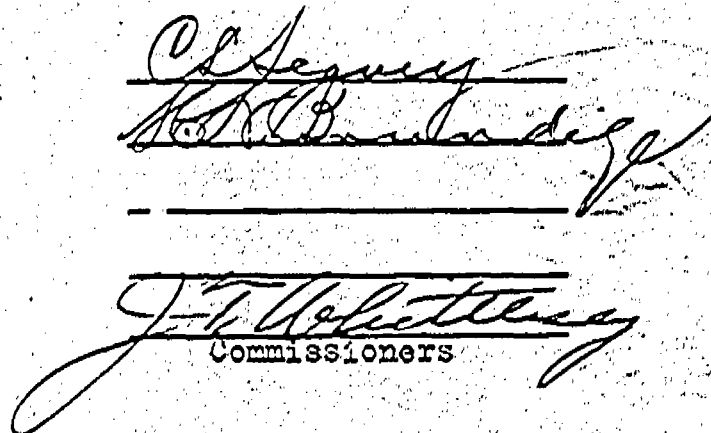 C L Seavey
H. W. Brundige
J. T. Whittlesey
Commissioners